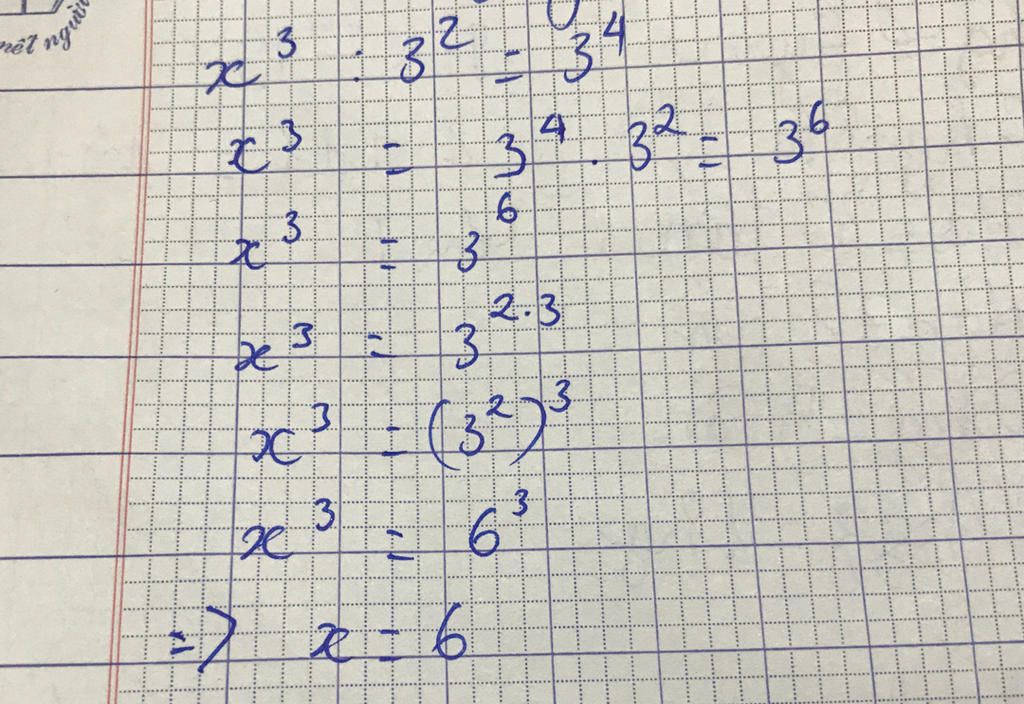 nét người
x³ : 3² = 3⁴
x³ = 3⁴ . 3² = 3⁶
x³ = 3⁶
x³ = 3²·³
x³ = (3²)³
x³ = 6³
=> x = 6